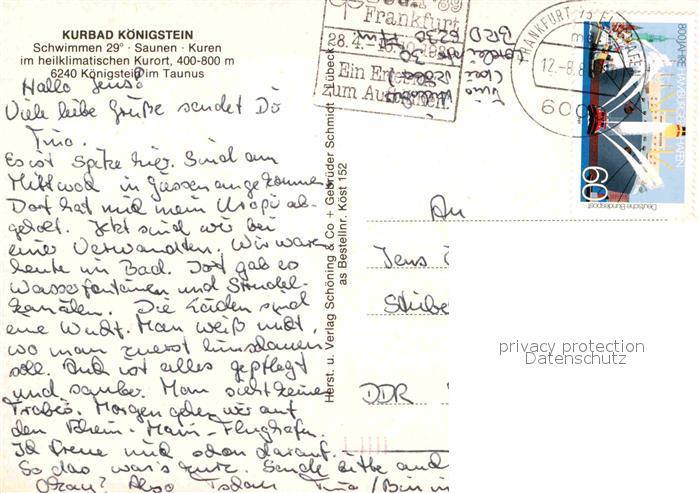 KURBAD KÖNIGSTEIN
Schwimmen 29° · Saunen · Kuren
im heilklimatischen Kurort, 400-800 m
6240 Königstein im Taunus
Hallo Jens!
Viele liebe Grüße sendet Dir
Tino.
Es ist Spitze hier. Sind am
Mittwoch in Giessen angekommen.
Dort hat mich mein Uropi ab-
geholt. Jetzt sind wir bei
einer Verwandten. Wir waren
heute im Bad. Dort gab es
Wasserfontainen und Strudel-
kanälen. Die Läden sind
eine Wucht. Man weiß nicht,
wo man zuerst hinschauen
soll. Auch ist alles gepflegt
und sauber. Man sieht keine
Trabis. Morgen gehen wir auf
den Rhein-Main-Flughafen.
Ich freue mich schon darauf.
So das war's kurz. Sende bitte auch
Okay? Also Tschau Tino / Bin
Herst. u. Verlag Schöning & Co + Gebrüder Schmidt · Lübeck
as Bestellnr. Köst 152
'89
Frankfurt
28.4.-
Ein Erlebnis
zum Aufblühen
Tino
BRD 6230 Ffm.
FRANKFURT
12.-8.8
600
800 JAHRE HAMBURGER HAFEN
60
Deutsche Bundespost
An
Jens
DDR
privacy protection
Datenschutz